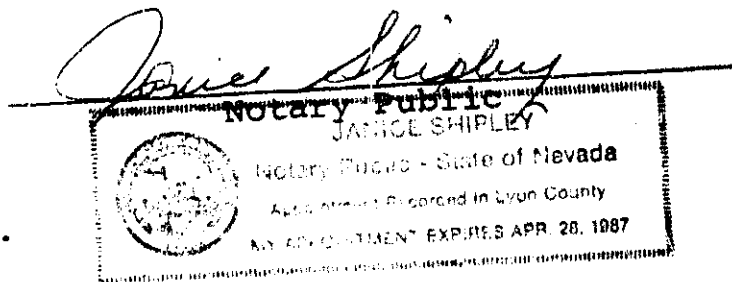 Janice Shipley
Notary Public
JANICE SHIPLEY
Notary Public - State of Nevada
Appointment Recorded in Lyon County
MY APPOINTMENT EXPIRES APR. 28, 1987